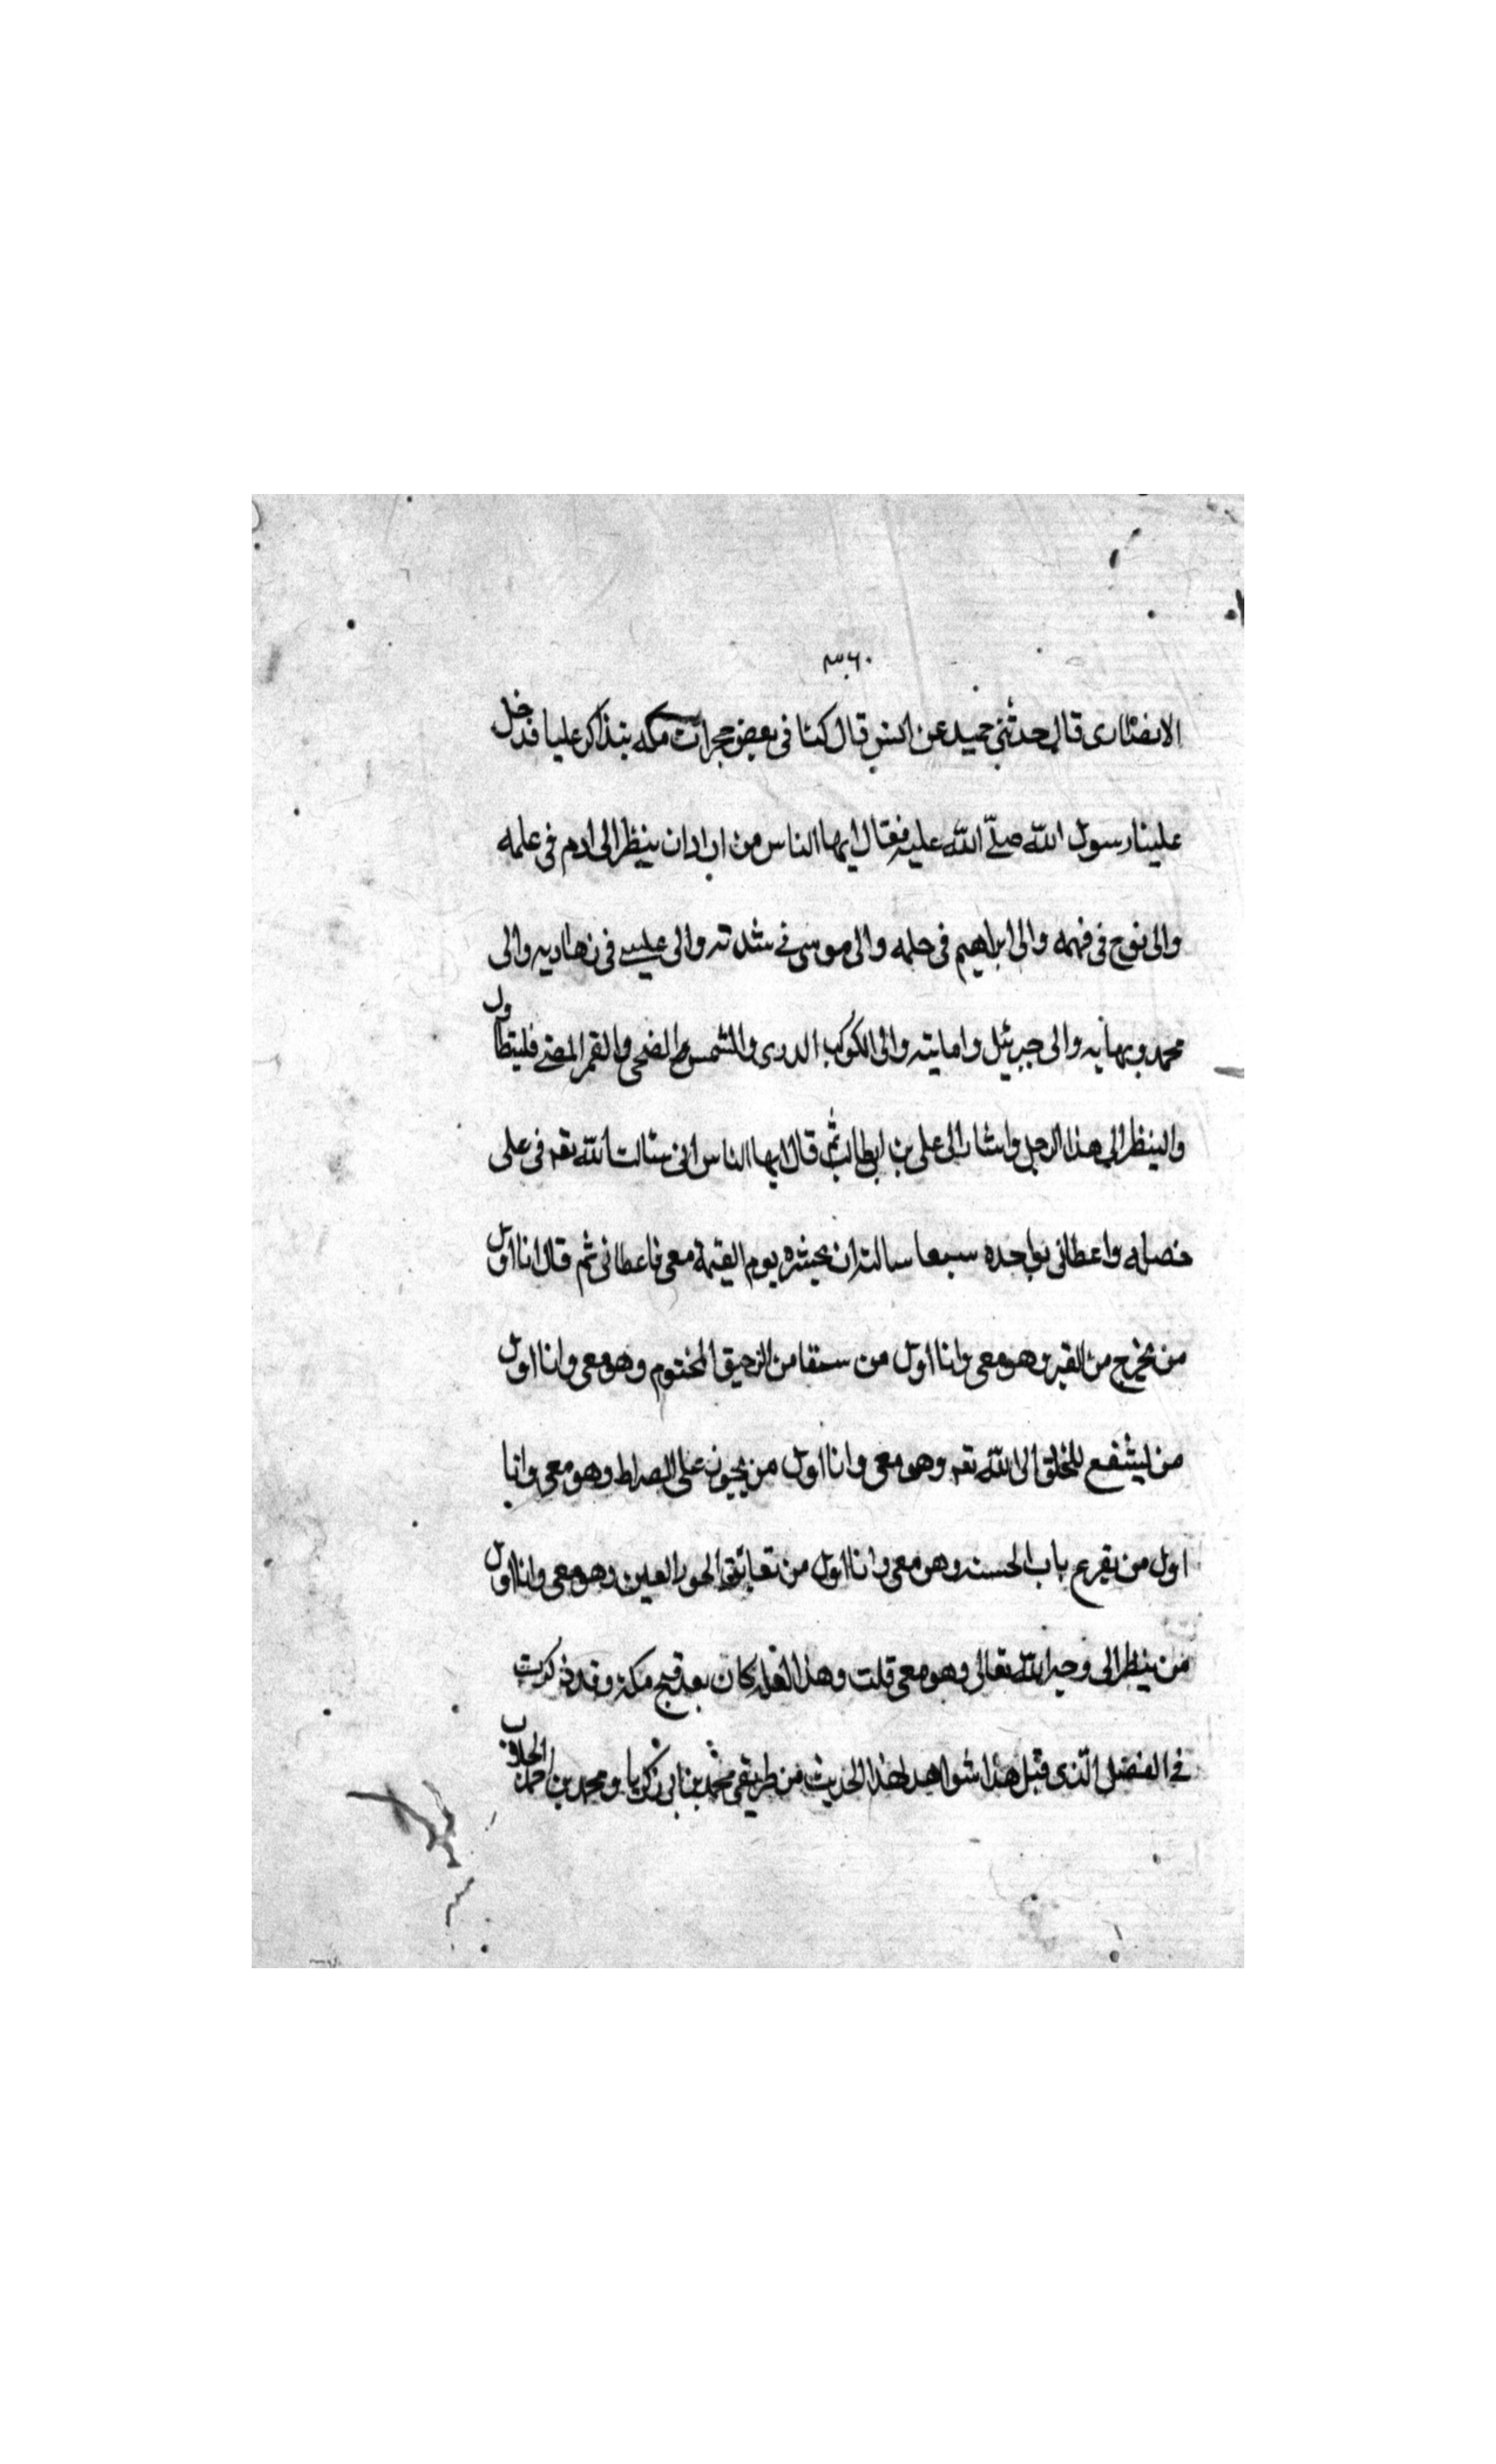 ٣٦٠
الانصاری قال حدثنی حمید عن انس قال کنا فی بعض حجرات مکه نتذاکر علیا فدخل
علینا رسول الله صلّی الله علیه فقال ایها الناس من اراد ان ینظر الی ادم فی علمه
والی نوح فی فهمه والی ابراهیم فی حلمه والی موسی فی شدته والی عیسی فی زهادیه والی
محمد وبهایه والی جبرئیل وامانته والی الکوکب الدری والشمس الضحی والقمر المضی فلیتطاول
والینظر الی هذا الرجل واشار الی علی بن ابی طالب ثم قال ایها الناس انی سئالت الله تعه فی علی
خصله واعطانی بواحده سبعا سالته ان یحشره یوم القیمة معی فاعطانی ثم قال انا اول
من یخرج من القبر وهو معی وانا اول من سقا من الرحیق المختوم وهو معی وانا اول
من لیشفع للخلق الی الله تعه وهو معی وانا اول من یجوز علی الصراط وهو معی وانا
اول من یقرع باب الجنه وهو معی وانا اول من تعانق الحور العین وهو معی وانا اول
من ینظر الی وجه الله تعالی وهو معی قلت وهذا لعله کان بعد فتح مکة وقد ذکرت
فی الفصل الّذی قبل هذا شواهد لهذا الحدیث من طریقی محمد بن ابی زکریا ومحمد بن احمد